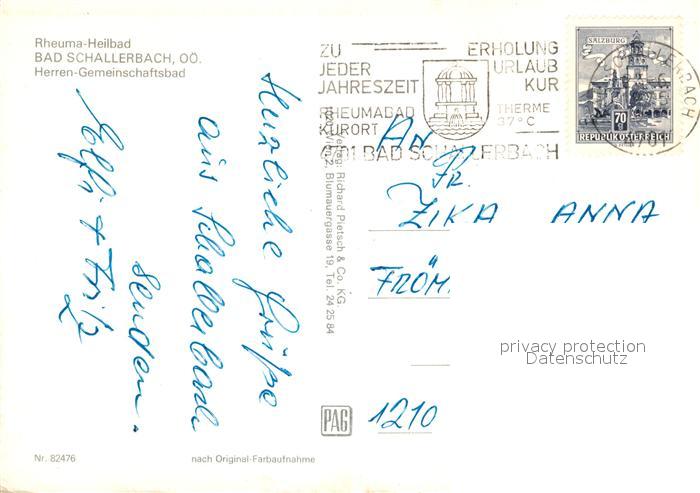 Rheuma-Heilbad
BAD SCHALLERBACH, OÖ.
Herren-Gemeinschaftsbad
Herzliche Grüße
aus Schallerbach
senden
Elfi + Fritz
Verlag: Richard Pietsch & Co. KG.
Blumauergasse 19, Tel. 24 25 84
ZU
JEDER
JAHRESZEIT
RHEUMABAD
KURORT
ERHOLUNG
URLAUB
KUR
THERME
37°C
4701 BAD SCHALLERBACH
SALZBURG
70
REPUBLIK ÖSTERREICH
An
Fr.
ZIKA ANNA
FRÖM.
1210
privacy protection
Datenschutz
PAG
Nr. 82476
nach Original-Farbaufnahme